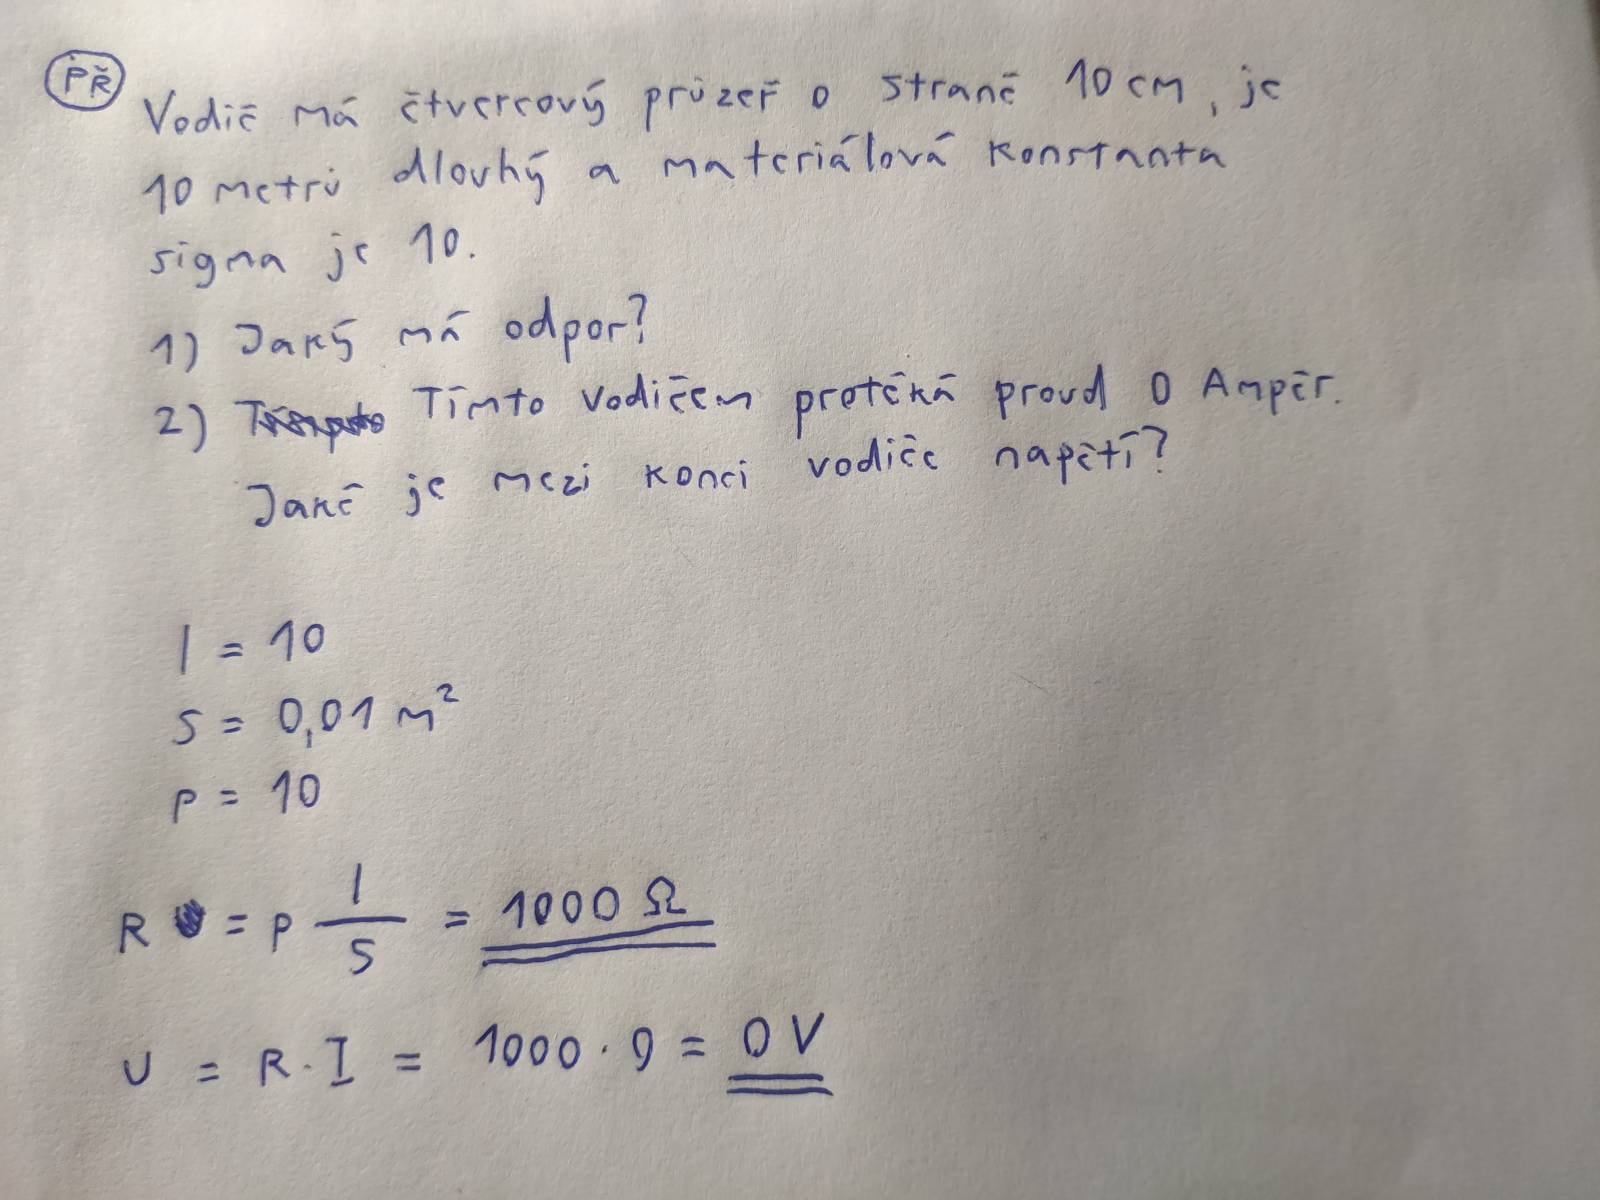 PŘ
Vodič má čtvercový průzeř o straně 10 cm, je
10 metrů dlouhý a materiálová konstanta
sigma je 10.
1) Jaký má odpor?
2) Tímto vodičem protéká proud 0 Ampér.
Jaké je mezi konci vodiče napětí?
l = 10
S = 0,01 m²
ρ = 10
R = ρ l/S = 1000 Ω
U = R · I = 1000 · 0 = 0 V